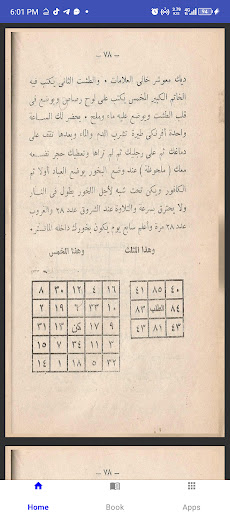 6:01 PM
— ٧٨ —
ديك معوشر خالى العلامات ، والطشت الثانى يكتب فيه
الخاتم الكبير المخمس يكتب على لوح رصاص ويوضع فى
قلب الطشت ويوضع عليه ماء وملح ، يحضر لك الساعة
واحدة أفرنكى طيرة تشرب الدم والماء وبعدها تقف على
دماغك ثم على رجلك ثم لم تراها وتعطيك حجر
معك ( ملحوظة ) عند وضع البخور يوضع العباد أولا ثم
الكافور ويكن تحت شبه لأجل البخور يطول فى النار
ولا يحترق بسرعة والتلاوة عند الشروق عدد ٢٨ والغروب
عدد ٢٨ مرة وأعلم سابع يوم يكون بخورك داخله
وهذا المثلث وهذا المخمس
٤٠ ٨٥ ٤١
٨٤ الطلب ٨٣
٤٣ ٨١ ٤٣
١٦ ٤ ١٢ ٣٠ ٨
١٠ ٣٣ ٦ ١٩ ٢
٩ ١٧ كن ١٣ ٣١
٣ ١١ ٣٤ ٧ ١٥
٣٢ ٥ ١٨ ١ ١٤
— ٧٨ —
Home Book Apps